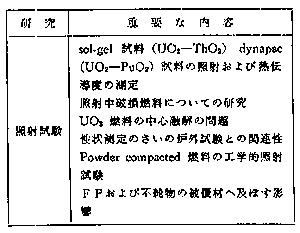 研究 重要な内容
照射試験
sol-gel 試料 (UO₂—ThO₂) dynapac
(UO₂—PuO₂) 試料の照射および熱伝
導度の測定
照射中破損燃料についての研究
UO₂ 燃料の中心融解の問題
性状測定のさいの炉外試験との関連性
Powder compacted 燃料の工学的照射
試験
FPおよび不純物の被覆材へ及ぼす影
響